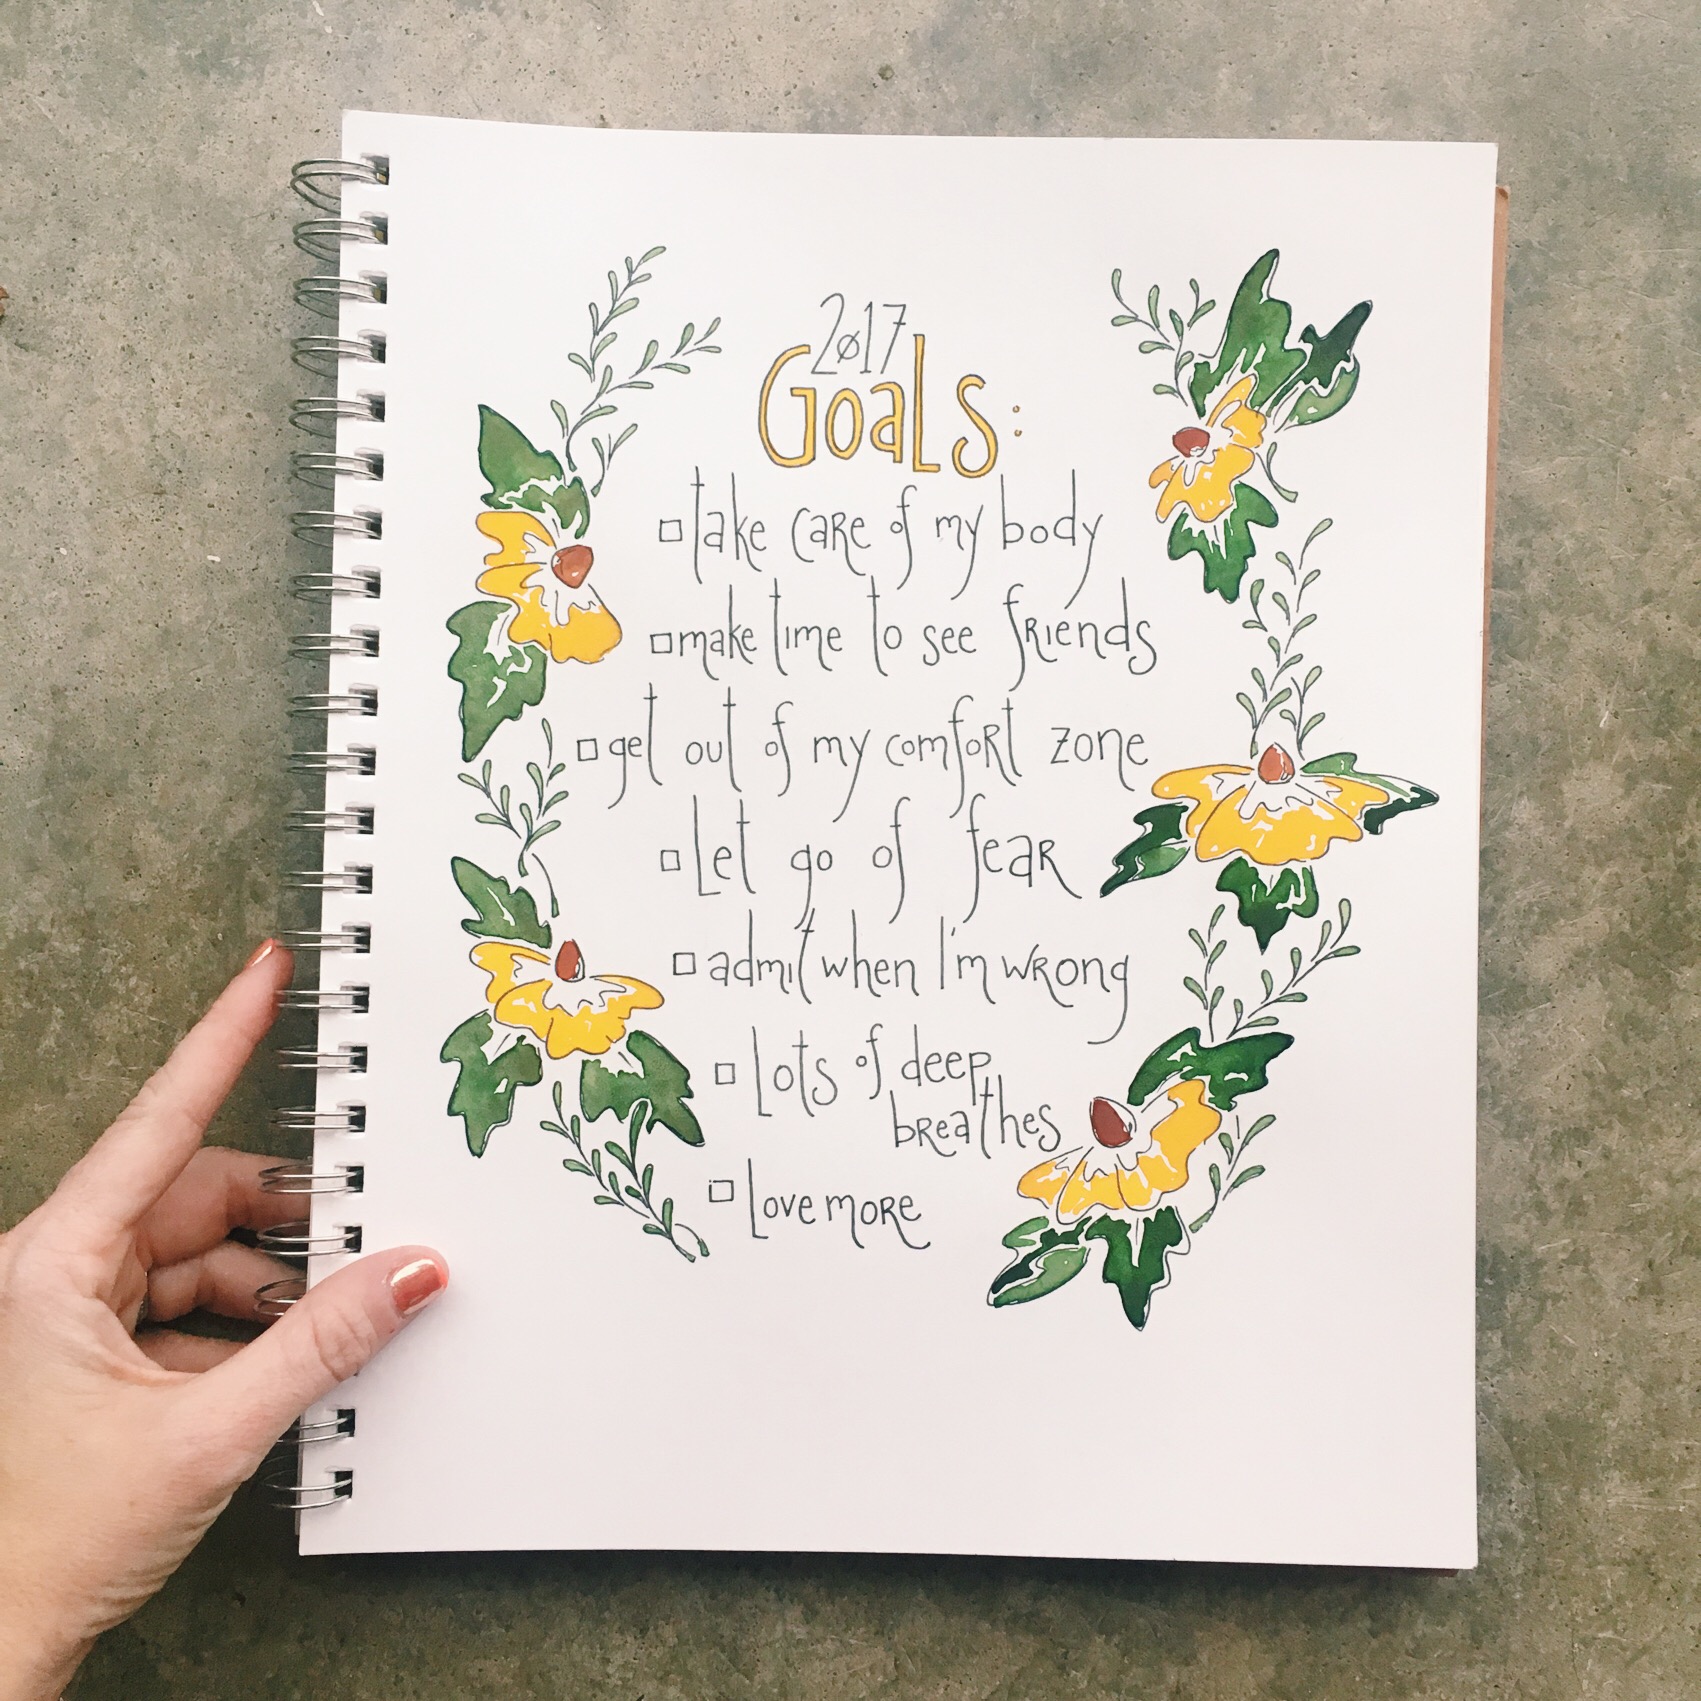 2017
Goals:
take care of my body
make time to see friends
get out of my comfort zone
Let go of fear
admit when I'm wrong
Lots of deep
breathes
Love more